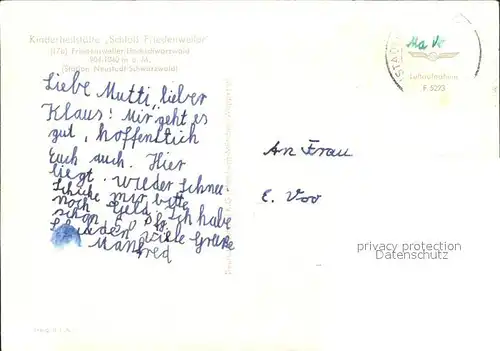 Kinderheilstätte „Schloß Friedenweiler"
(17b) Friedenweiler Hochschwarzwald
(Station Neustadt-Schwarzwald)
Liebe Mutti, lieber
Klaus! Mir geht es
gut, hoffentlich
Euch auch. Hier
liegt wieder Schnee.
Schicke mir bitte
noch Geld. Ich habe
schon Pfg.
viele Grüße
Manfred
An Frau
E. Voo
STADT
Ma Vo
Luftaufnahme
F 5293
privacy protection
Datenschutz